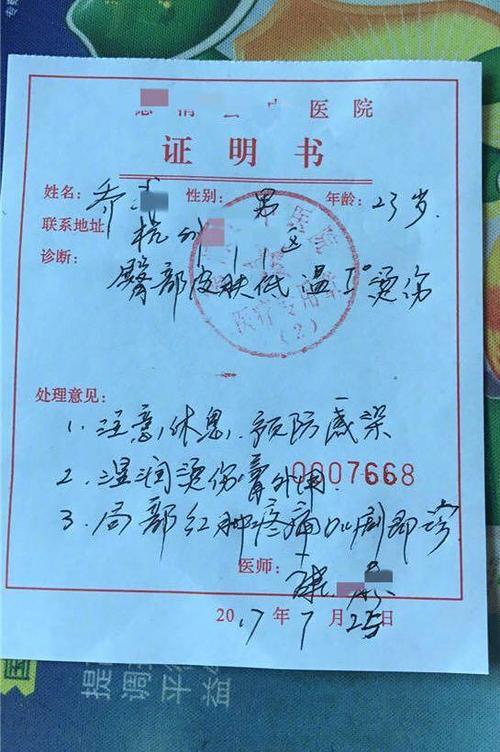 医院
证明书
姓名: 乔 性别: 男 年龄: 23岁
联系地址 杭州 区
诊断:
臀部皮肤低温Ⅱ°烫伤
医疗专用章
(2)
处理意见:
1. 注意休息.预防感染
2. 湿润烫伤膏外用.
0007668
3. 局部红肿疼痛加剧即诊
医师: 陈
2017年7月25日
提
调
平
益